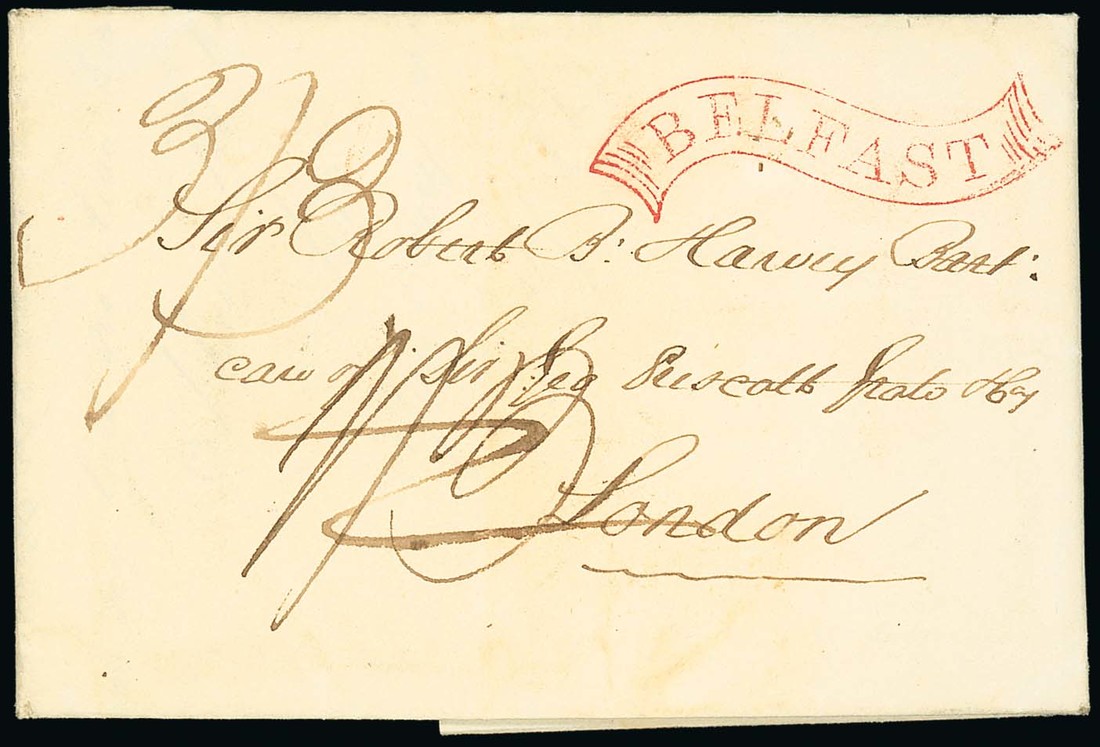 BELFAST
3/3
Sir Robert B: Harvey Bart:
care of Sir Geo Priscott Grote &
London